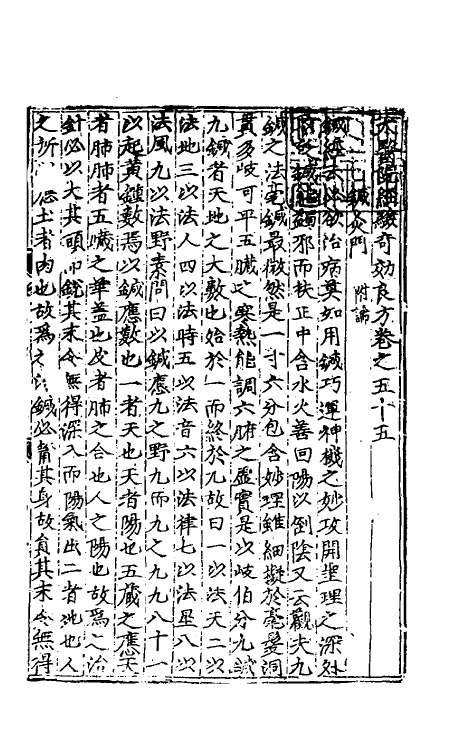 太醫院經驗奇効良方卷之五十五
鍼灸門 附論
鍼經 法 欲治病莫如用鍼巧運神機之妙攻開聖理之深外
鍼能蠲邪而扶正中含水火善回陽以倒陰又云觀夫九
鍼之法毫鍼最微然是一寸六分包含妙理雖細擬於毫髮洞
貫多岐可平五臟之寒熱能調六腑之虛實是以岐伯分九鍼
九鍼者天地之大數也始於一而終於九故曰一以法天二以
法地三以法人四以法時五以法音六以法律七以法星八以
法風九以法野素問曰以鍼應九之野九而九之九九八十一
以起黃鍾數焉以鍼應數也一者天也天者陽也五藏之應天
者肺肺者五臟之華蓋也皮者肺之合也人之陽也故爲之治
針必以大其頭而銳其末令無得深入而陽氣出二者地也人
之所 應土者肉也故爲之 鍼必 其身故員其末令無得